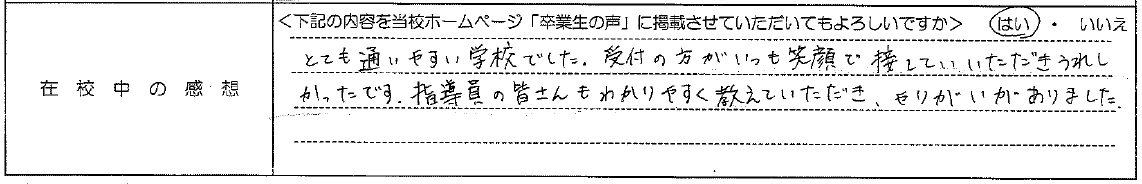 <下記の内容を当校ホームページ「卒業生の声」に掲載させていただいてもよろしいですか> はい ・ いいえ
在校中の感想
とても通いやすい学校でした。受付の方がいつも笑顔で接していいただきうれし
かったです。指導員の皆さんもわかりやすく教えていただき、やりがいがありました。